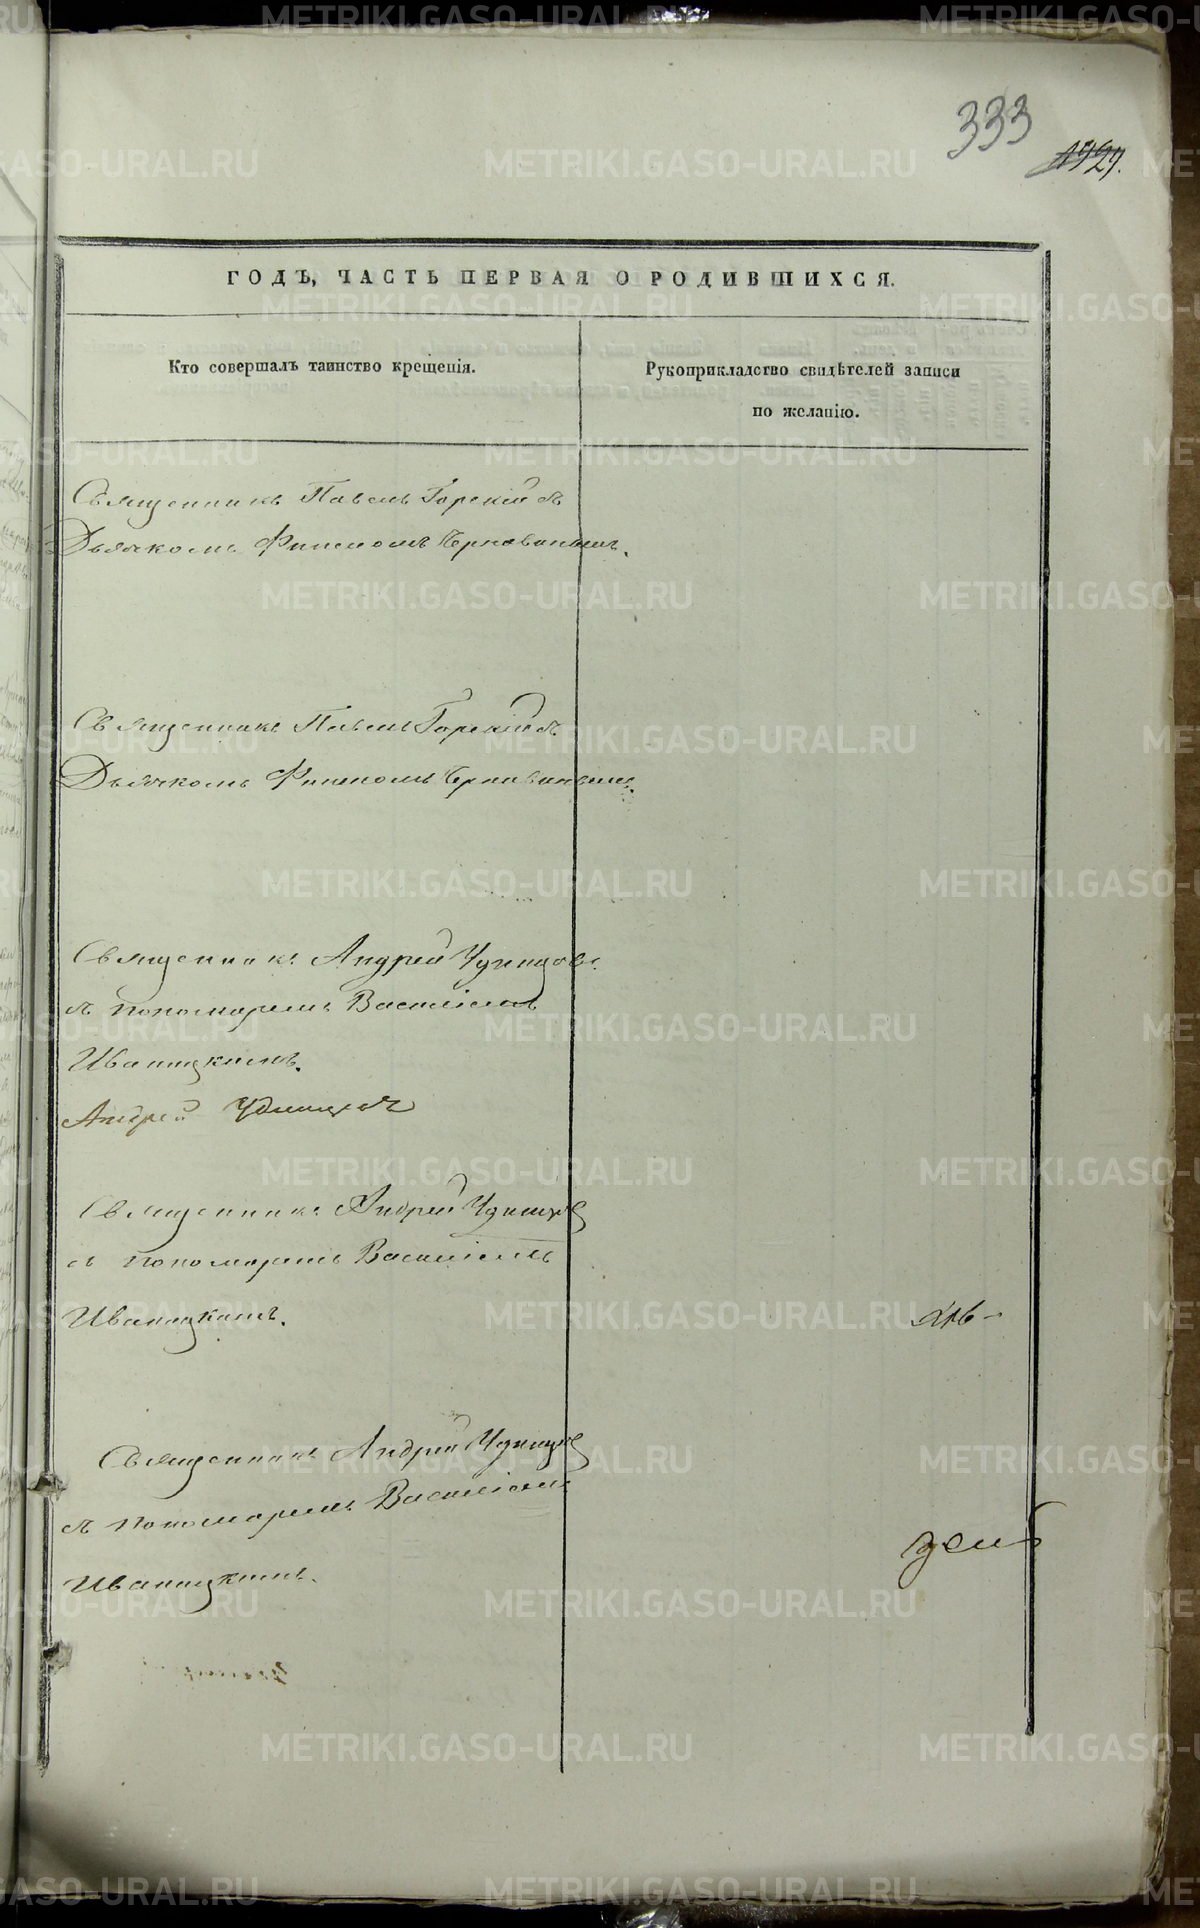 333
1929.
ГОДЪ, ЧАСТЬ ПЕРВАЯ О РОДИВШИХСЯ.
Кто совершалъ таинство крещенія.
Рукоприкладство свидѣтелей записи
по желанію.
Священникъ Павелъ Горскій съ
Дьячкомъ
Священникъ Павелъ Горскій съ
Дьячкомъ
Священникъ Андрей Удинцовъ
съ пономаремъ Василіемъ
Ивануцкимъ.
Андрей Удинцов
Священникъ Андрей Удинцов
съ пономаремъ Василіемъ
Ивануцкимъ.
Священникъ Андрей Удинцов
съ пономаремъ Василіемъ
Ивануцкимъ.
METRIKI.GASO-URAL.RU